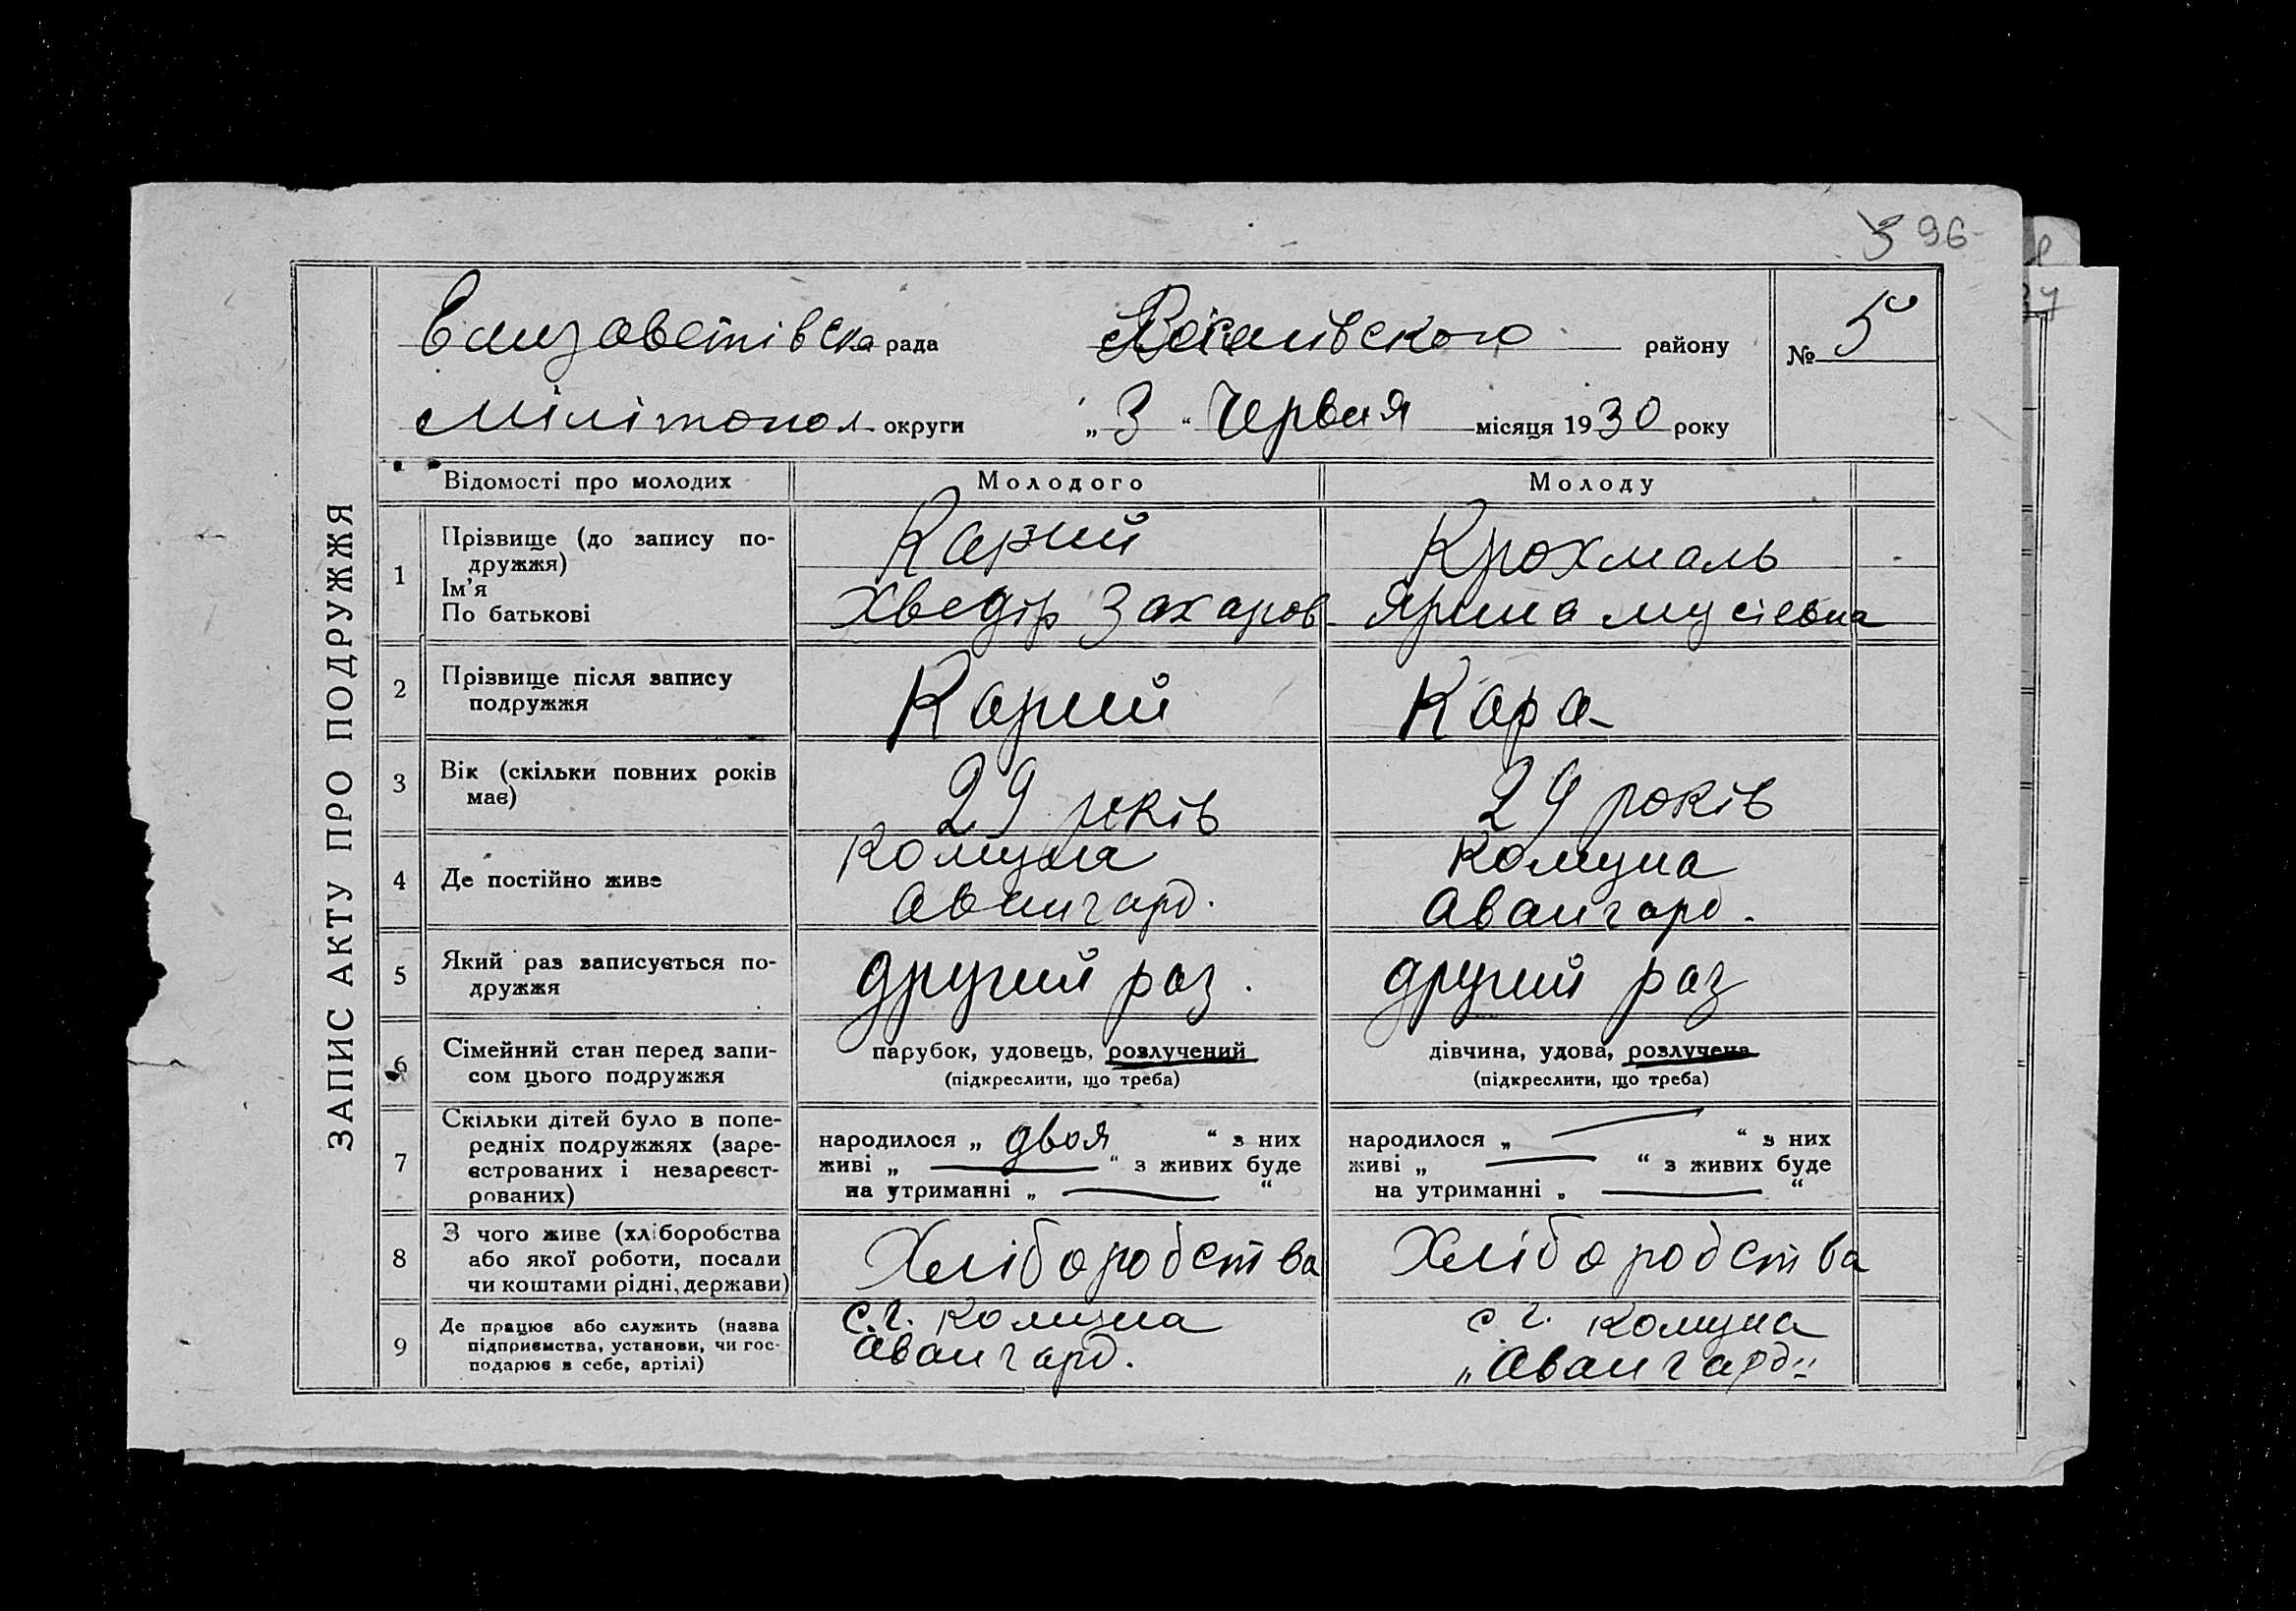 96
ЗАПИС АКТУ ПРО ПОДРУЖЖЯ
Єлизаветівска рада району № 5
Мілітопол округи „3“ Червня місяця 1930 року
Відомості про молодих Молодого Молоду
1 Прізвище (до запису по-
дружжя)
Ім'я
По батькові
Карий
Хведір Захаров
Крохмаль
Ярина Мусієвна
2 Прізвище після запису
подружжя
Карий
Кара
3 Вік (скільки повних років
має)
29 років
29 років
4 Де постійно живе
Комуна
Авангард.
Комуна
Авангард.
5 Який раз записується по-
дружжя
другий раз.
другий раз
6 Сімейний стан перед запи-
сом цього подружжя
парубок, удовець, розлучений
(підкреслити, що треба)
дівчина, удова, розлучена
(підкреслити, що треба)
7 Скільки дітей було в попе-
редніх подружжях (заре-
єстрованих і незареєст-
рованих)
народилося „ двоя “ з них
живі „ — “ з живих буде
на утриманні „ — “
народилося „ — “ з них
живі „ — “ з живих буде
на утриманні „ — “
8 З чого живе (хліборобства
або якої роботи, посади
чи коштами рідні, держави)
Хліборобства
Хліборобства
9 Де працює або служить (назва
підприємства, установи, чи гос-
подарює в себе, артілі)
с.г. комуна
Авангард.
с.г. комуна
„Авангард"